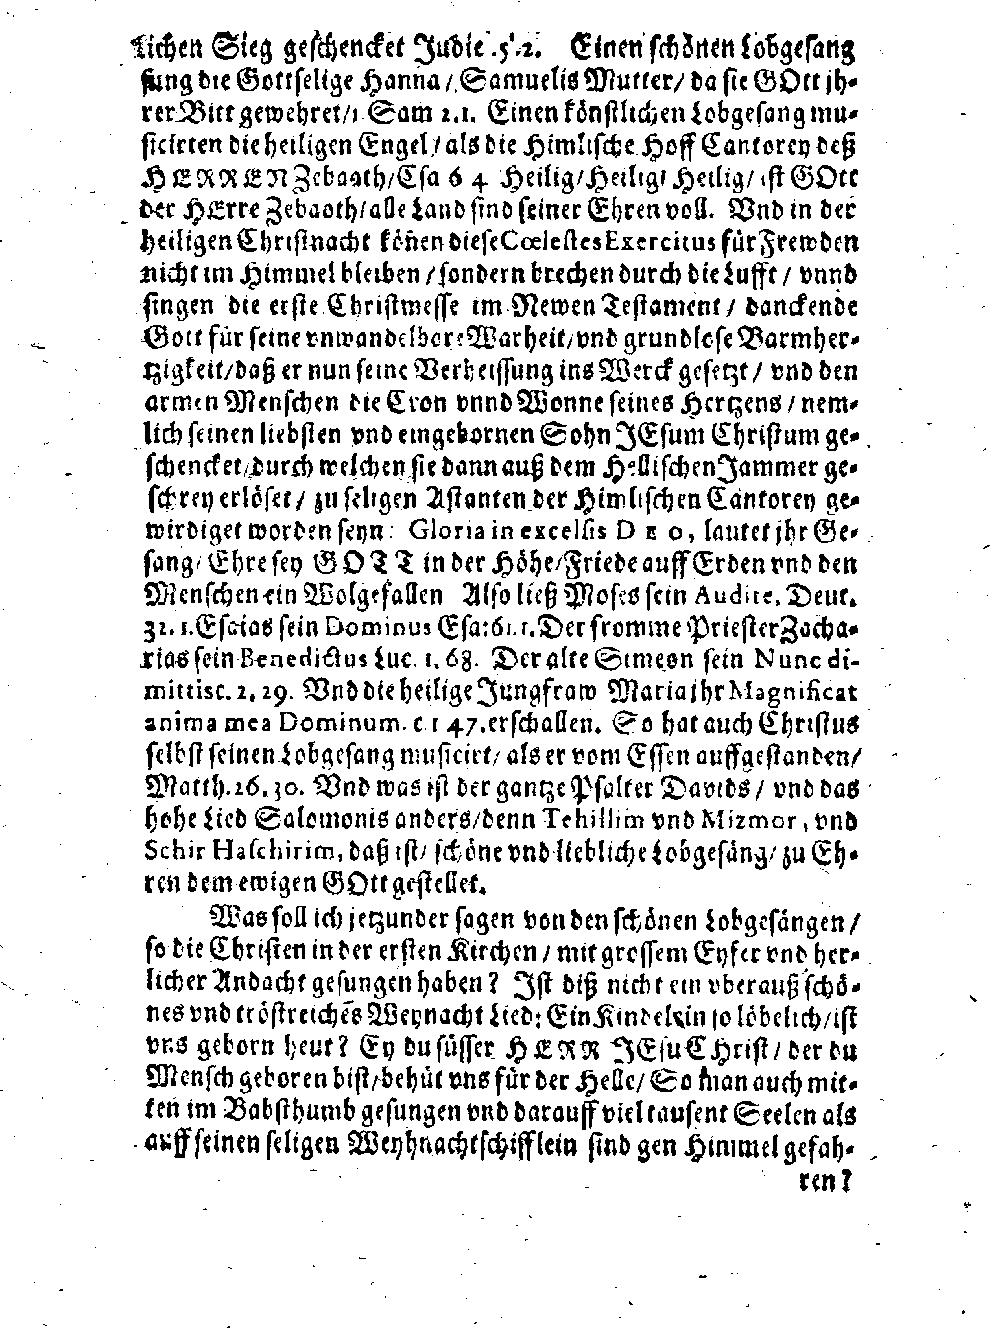 lichen Sieg geschencket Judic. 5. 2. Einen schönen Lobgesang
sung die Gottselige Hanna / Samuelis Mutter / da sie GOtt jh-
rer Bitt gewehret / 1 Sam 2. 1. Einen könstlichen Lobgesang mu-
sicirten die heiligen Engel / als die Himlische Hoff Cantorey deß
HERREN Zebaoth / Esa 6 4 Heilig / Heilig / Heilig / ist GOtt
der HErre Zebaoth / alle Land sind seiner Ehren voll. Vnd in der
heiligen Christnacht köñen diese Cœlestes Exercitus für Frewden
nicht im Himmel bleiben / sondern brechen durch die Lufft / vnnd
singen die erste Christmesse im Newen Testament / danckende
Gott für seine vnwandelbare Warheit / vnd grundlose Barmher-
tzigkeit / daß er nun seine Verheissung ins Werck gesetzt / vnd den
armen Menschen die Cron vnnd Wonne seines Hertzens / nem-
lich seinen liebsten vnd eingebornen Sohn JEsum Christum ge-
schencket / durch welchen sie dann auß dem Hellischen Jammer ge-
schrey erlöset / zu seligen Astanten der Himlischen Cantorey ge-
wirdiget worden seyn: Gloria in excelsis DEO, lautet jhr Ge-
sang / Ehre sey GOTT in der Höhe / Friede auff Erden vnd den
Menschen ein Wolgefallen Also ließ Moses sein Audite, Deut.
32. 1. Esaias sein Dominus Esa: 61. 1. Der fromme Priester Zacha-
rias sein Benedictus Luc. 1. 68. Der alte Simeon sein Nunc di-
mittis c. 2. 29. Vnd die heilige Jungfraw Maria jhr Magnificat
anima mea Dominum. c 1 47. erschallen. So hat auch Christus
selbst seinen Lobgesang musicirt / als er vom Essen auffgestanden /
Matth. 26. 30. Vnd was ist der gantze Psalter Davids / vnd das
hohe Lied Salomonis anders / denn Tehillim vnd Mizmor, vnd
Schir Haschirim, daß ist / schöne vnd liebliche Lobgesäng / zu Eh-
ren dem ewigen GOtt gestellet.
Was soll ich jetzunder sagen von den schönen Lobgesängen /
so die Christen in der ersten Kirchen / mit grossem Eyfer vnd her-
licher Andacht gesungen haben? Ist diß nicht ein vberauß schö-
nes vnd tröstreiches Weynacht Lied: Ein Kindelein so löbelich / ist
vns geborn heut? Ey du süsser HERR JEsu CHrist / der du
Mensch geboren bist / behüt vns für der Helle / So man auch mit-
ten im Babsthumb gesungen vnd darauff viel tausent Seelen als
auff seinen seligen Weyhnachtschifflein sind gen Himmel gefah-
ren?